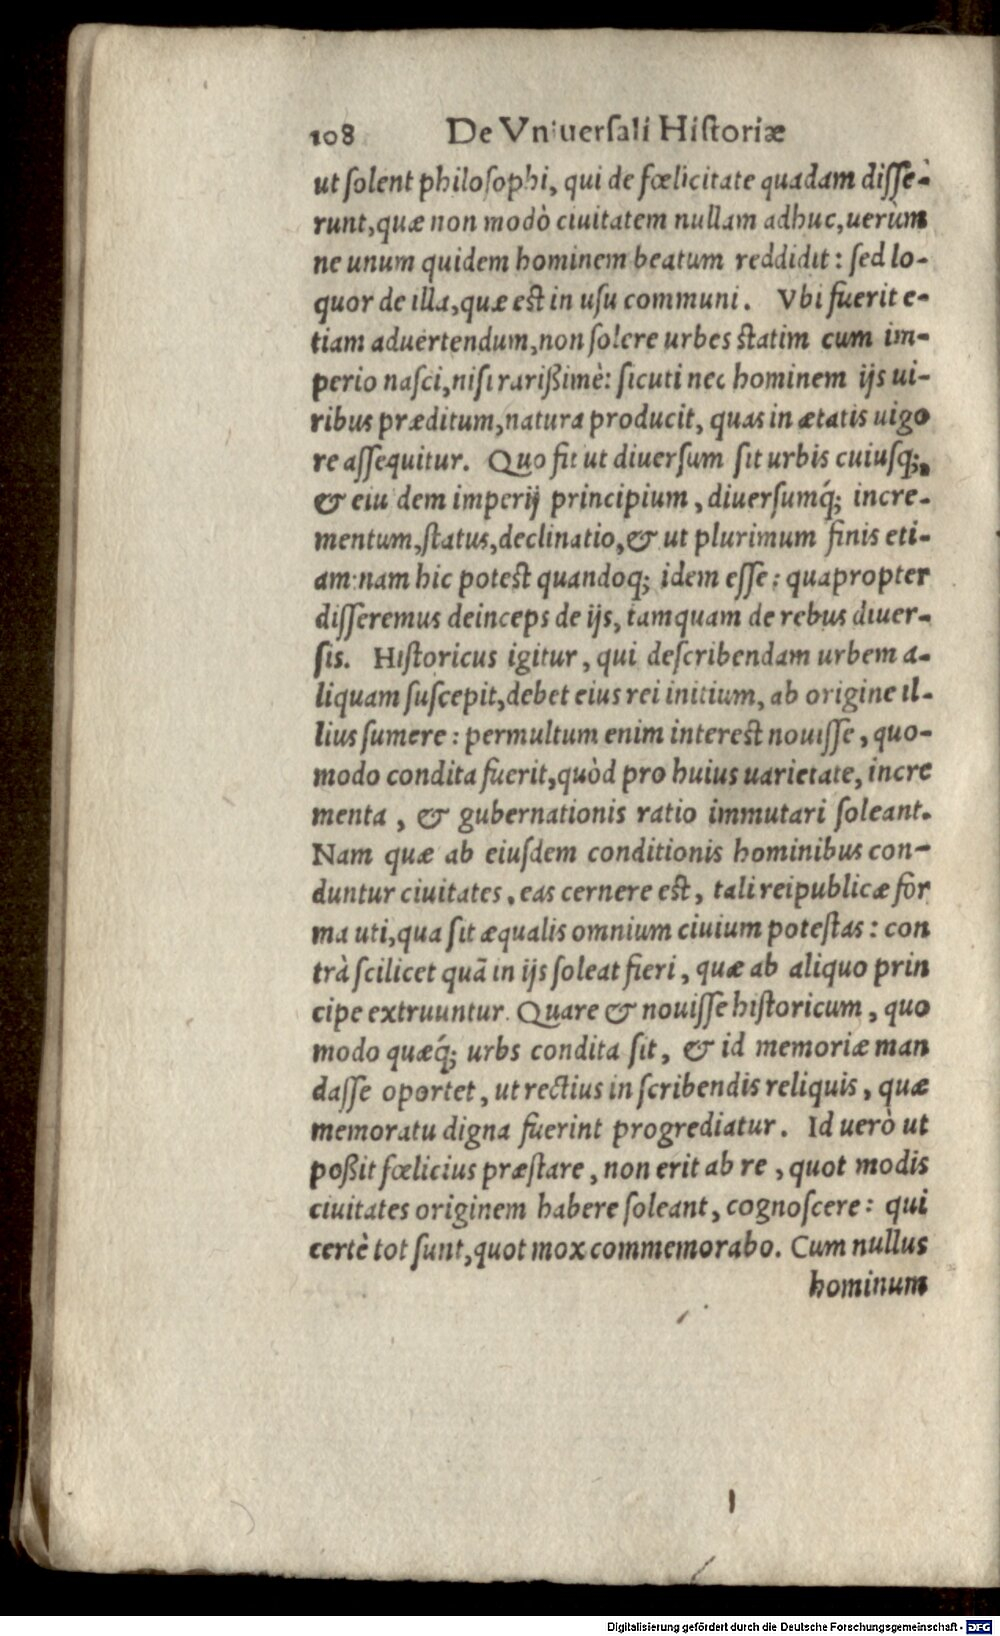 108 De Vniuerſali Hiſtoriæ
ut ſolent philoſophi, qui de fœlicitate quadam diſſe-
runt, quæ non modò ciuitatem nullam adhuc, uerùm
ne unum quidem hominem beatum reddidit: ſed lo-
quor de illa, quæ eſt in uſu communi. Vbi fuerit e-
tiam aduertendum, non ſolere urbes ſtatim cum im-
perio naſci, niſi rarißimè: ſicuti nec hominem ijs ui-
ribus præditum, natura producit, quas in ætatis uigo
re aſſequitur. Quo fit ut diuerſum ſit urbis cuiuſq;,
& eiu dem imperij principium, diuerſumq́; incre-
mentum, ſtatus, declinatio, & ut plurimum finis eti-
am: nam hic poteſt quandoq; idem eſſe: quapropter
diſſeremus deinceps de ijs, tamquam de rebus diuer-
ſis. Hiſtoricus igitur, qui deſcribendam urbem a-
liquam ſuſcepit, debet eius rei initium, ab origine il-
lius ſumere: permultum enim intereſt nouiſſe, quo-
modo condita fuerit, quòd pro huius uarietate, incre
menta, & gubernationis ratio immutari ſoleant.
Nam quæ ab eiuſdem conditionis hominibus con-
duntur ciuitates, eas cernere eſt, tali reipublicæ for
ma uti, qua ſit æqualis omnium ciuium poteſtas: con
trà ſcilicet quã in ijs ſoleat fieri, quæ ab aliquo prin
cipe extruuntur. Quare & nouiſſe hiſtoricum, quo
modo quæq́; urbs condita ſit, & id memoriæ man
daſſe oportet, ut rectius in ſcribendis reliquis, quæ
memoratu digna fuerint progrediatur. Id uerò ut
poßit fœlicius præſtare, non erit ab re, quot modis
ciuitates originem habere ſoleant, cognoſcere: qui
certè tot ſunt, quot mox commemorabo. Cum nullus
hominum
Digitalisierung gefördert durch die Deutsche Forschungsgemeinschaft - DFG